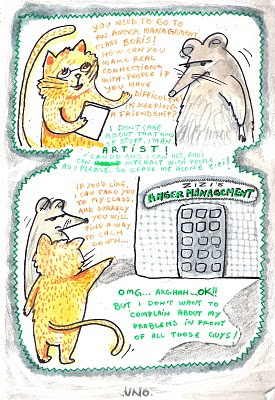 YOU NEED TO GO TO
AN ANGER MANAGEMENT
CLASS BORIS!
HOW CAN YOU
MAKE REAL
CONNECTIONS
WITH PEOPLE IF
YOU HAVE
DIFFICULTIES
IN KEEPING
A FRIENDSHIP?
I DON'T CARE
ABOUT THAT KIND
OF STUFF. I'M AN
ARTIST!
I CAN DO AND I CAN ACT, AND I
CAN INTERACT WITH PEOPLE
AS I PLEASE. SO LEAVE ME ALONE
IF YOU'D LIKE,
I CAN TAKE YOU
TO MY CLASS,
AND SURELY
YOU WILL
FIND A WAY
TO CALM
DOWN...
ZIZI'S
ANGER MANAGEMENT
OMG... ARGHHH...OK!!
BUT I DON'T WANT TO
COMPLAIN ABOUT MY
PROBLEMS IN FRONT
OF ALL THOSE GUYS!
.UNO.